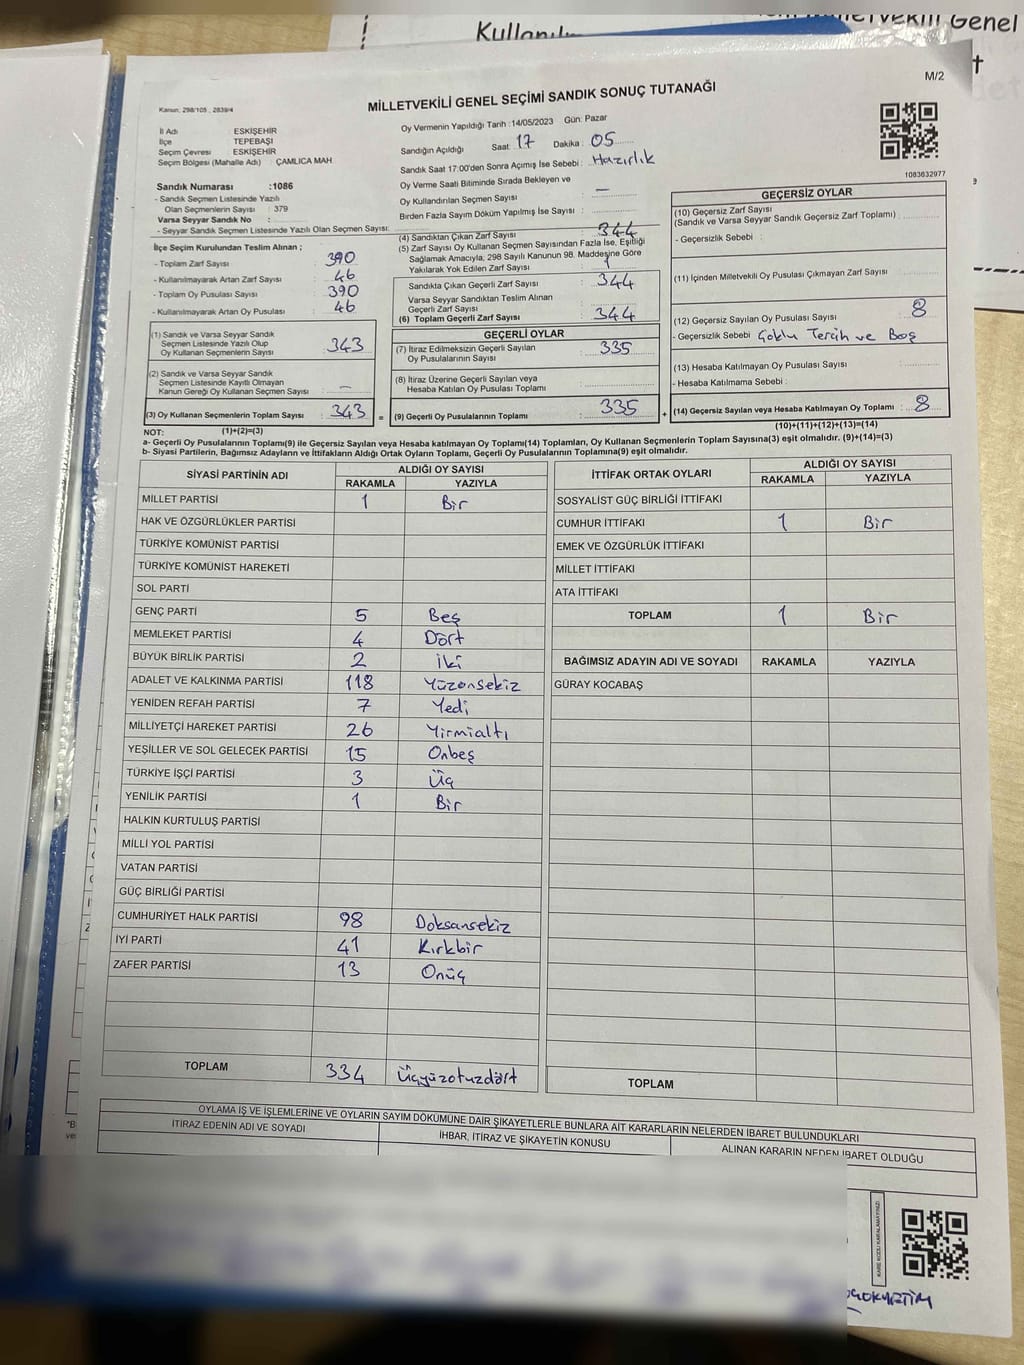 Kullanılm
Milletvekili Genel
M/2
Kanun: 298/105 , 2839/4
MİLLETVEKİLİ GENEL SEÇİMİ SANDIK SONUÇ TUTANAĞI
İl Adı : ESKİŞEHİR
İlçe : TEPEBAŞI
Seçim Çevresi : ESKİŞEHİR
Seçim Bölgesi (Mahalle Adı) : ÇAMLICA MAH.
Sandık Numarası :1086
- Sandık Seçmen Listesinde Yazılı
Olan Seçmenlerin Sayısı : 379
Varsa Seyyar Sandık No :
- Seyyar Sandık Seçmen Listesinde Yazılı Olan Seçmen Sayısı:
Oy Vermenin Yapıldığı Tarih :14/05/2023 Gün: Pazar
Sandığın Açıldığı Saat 17 Dakika : 05
Sandık Saat 17:00'den Sonra Açımış İse Sebebi : Hazırlık
Oy Verme Saati Bitiminde Sırada Bekleyen ve
Oy Kullandırılan Seçmen Sayısı : —
Birden Fazla Sayım Döküm Yapılmış İse Sayısı :
1083632977
İlçe Seçim Kurulundan Teslim Alınan ;
- Toplam Zarf Sayısı : 390
- Kullanılmayarak Artan Zarf Sayısı : 46
- Toplam Oy Pusulası Sayısı : 390
- Kullanılmayarak Artan Oy Pusulası : 46
(1) Sandık ve Varsa Seyyar Sandık
Seçmen Listesinde Yazılı Olup
Oy Kullanan Seçmenlerin Sayısı : 343
(2) Sandık ve Varsa Seyyar Sandık
Seçmen Listesinde Kayıtlı Olmayan
Kanun Gereği Oy Kullanan Seçmen Sayısı : —
(3) Oy Kullanan Seçmenlerin Toplam Sayısı : 343 =
(1)+(2)=(3)
(4) Sandıktan Çıkan Zarf Sayısı : 344
(5) Zarf Sayısı Oy Kullanan Seçmen Sayısından Fazla İse, Eşitliği
Sağlamak Amacıyla; 298 Sayılı Kanunun 98. Maddesine Göre
Yakılarak Yok Edilen Zarf Sayısı : 1
Sandıkta Çıkan Geçerli Zarf Sayısı : 344
Varsa Seyyar Sandıktan Teslim Alınan
Geçerli Zarf Sayısı :
(6) Toplam Geçerli Zarf Sayısı : 344
GEÇERLİ OYLAR
(7) İtiraz Edilmeksizin Geçerli Sayılan
Oy Pusulalarının Sayısı : 335
(8) İtiraz Üzerine Geçerli Sayılan veya
Hesaba Katılan Oy Pusulası Toplamı :
(9) Geçerli Oy Pusulalarının Toplamı : 335 +
GEÇERSİZ OYLAR
(10) Geçersiz Zarf Sayısı
(Sandık ve Varsa Seyyar Sandık Geçersiz Zarf Toplamı) :
- Geçersizlik Sebebi :
(11) İçinden Milletvekili Oy Pusulası Çıkmayan Zarf Sayısı :
(12) Geçersiz Sayılan Oy Pusulası Sayısı : 8
- Geçersizlik Sebebi : Çoklu Tercih ve Boş
(13) Hesaba Katılmayan Oy Pusulası Sayısı :
- Hesaba Katılmama Sebebi :
(14) Geçersiz Sayılan veya Hesaba Katılmayan Oy Toplamı : 8
(10)+(11)+(12)+(13)=(14)
NOT:
a- Geçerli Oy Pusulalarının Toplamı(9) ile Geçersiz Sayılan veya Hesaba katılmayan Oy Toplamı(14) Toplamları, Oy Kullanan Seçmenlerin Toplam Sayısına(3) eşit olmalıdır. (9)+(14)=(3)
b- Siyasi Partilerin, Bağımsız Adayların ve İttifakların Aldığı Ortak Oyların Toplamı, Geçerli Oy Pusulalarının Toplamına(9) eşit olmalıdır.
SİYASİ PARTİNİN ADI ALDIĞI OY SAYISI
RAKAMLA YAZIYLA
MİLLET PARTİSİ 1 Bir
HAK VE ÖZGÜRLÜKLER PARTİSİ
TÜRKİYE KOMÜNİST PARTİSİ
TÜRKİYE KOMÜNİST HAREKETİ
SOL PARTİ
GENÇ PARTİ 5 Beş
MEMLEKET PARTİSİ 4 Dört
BÜYÜK BİRLİK PARTİSİ 2 İki
ADALET VE KALKINMA PARTİSİ 118 Yüzonsekiz
YENİDEN REFAH PARTİSİ 7 Yedi
MİLLİYETÇİ HAREKET PARTİSİ 26 Yirmialtı
YEŞİLLER VE SOL GELECEK PARTİSİ 15 Onbeş
TÜRKİYE İŞÇİ PARTİSİ 3 Üç
YENİLİK PARTİSİ 1 Bir
HALKIN KURTULUŞ PARTİSİ
MİLLİ YOL PARTİSİ
VATAN PARTİSİ
GÜÇ BİRLİĞİ PARTİSİ
CUMHURİYET HALK PARTİSİ 98 Doksansekiz
İYİ PARTİ 41 Kırkbir
ZAFER PARTİSİ 13 Onüç
TOPLAM 334 Üçyüzotuzdört
İTTİFAK ORTAK OYLARI ALDIĞI OY SAYISI
RAKAMLA YAZIYLA
SOSYALİST GÜÇ BİRLİĞİ İTTİFAKI
CUMHUR İTTİFAKI 1 Bir
EMEK VE ÖZGÜRLÜK İTTİFAKI
MİLLET İTTİFAKI
ATA İTTİFAKI
TOPLAM 1 Bir
BAĞIMSIZ ADAYIN ADI VE SOYADI RAKAMLA YAZIYLA
GÜRAY KOCABAŞ
TOPLAM
OYLAMA İŞ VE İŞLEMLERİNE VE OYLARIN SAYIM DÖKÜMÜNE DAİR ŞİKAYETLERLE BUNLARA AİT KARARLARIN NELERDEN İBARET BULUNDUKLARI
İTİRAZ EDENİN ADI VE SOYADI İHBAR, İTİRAZ VE ŞİKAYETİN KONUSU ALINAN KARARIN NEDEN İBARET OLDUĞU
KARE KODU KARALAMAYINIZ!